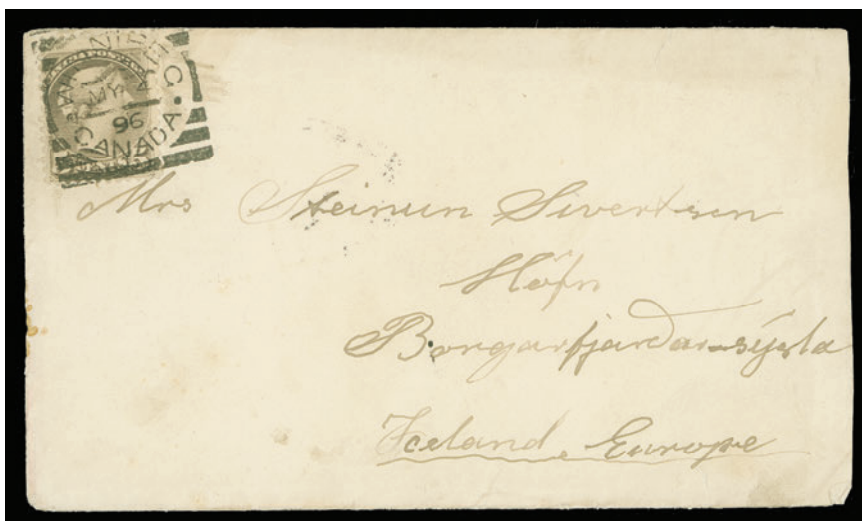 MY
96
CANADA
Mrs Steinun Sivertsen
Höfn
Borgarfjarðar-sýsla
Iceland, Europe